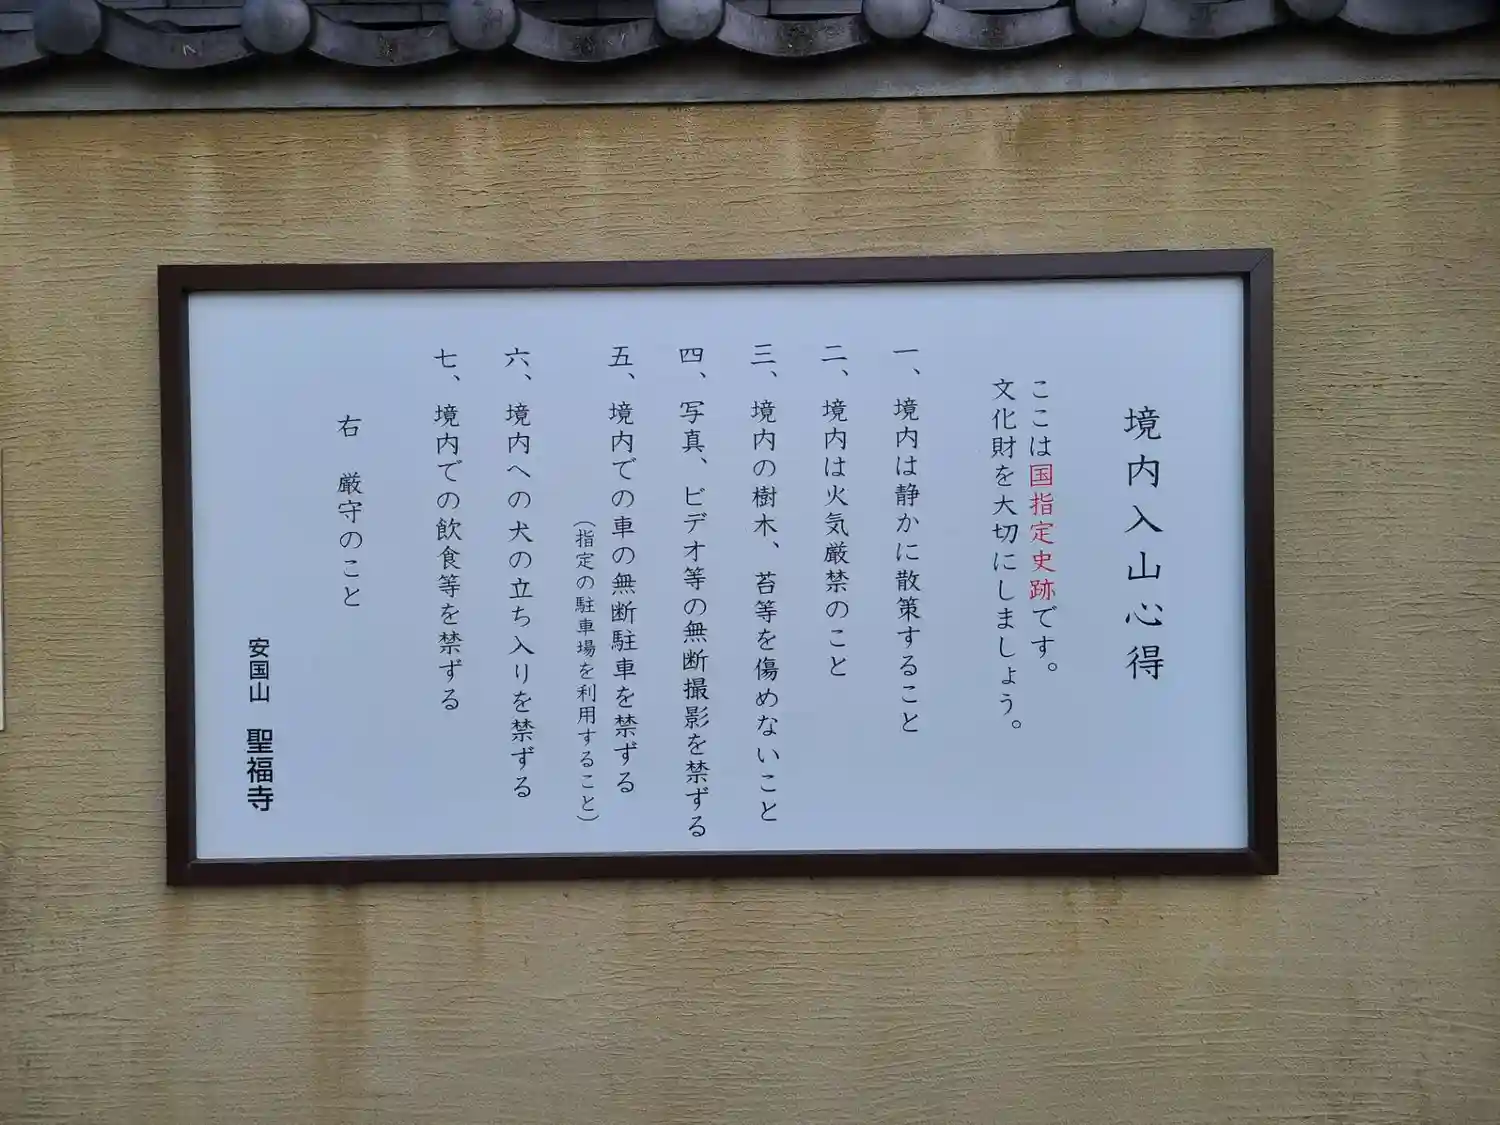 境内入山心得
ここは国指定史跡です。
文化財を大切にしましょう。
一、境内は静かに散策すること
二、境内は火気厳禁のこと
三、境内の樹木、苔等を傷めないこと
四、写真、ビデオ等の無断撮影を禁ずる
五、境内での車の無断駐車を禁ずる
(指定の駐車場を利用すること)
六、境内への犬の立ち入りを禁ずる
七、境内での飲食等を禁ずる
右 厳守のこと
安国山 聖福寺